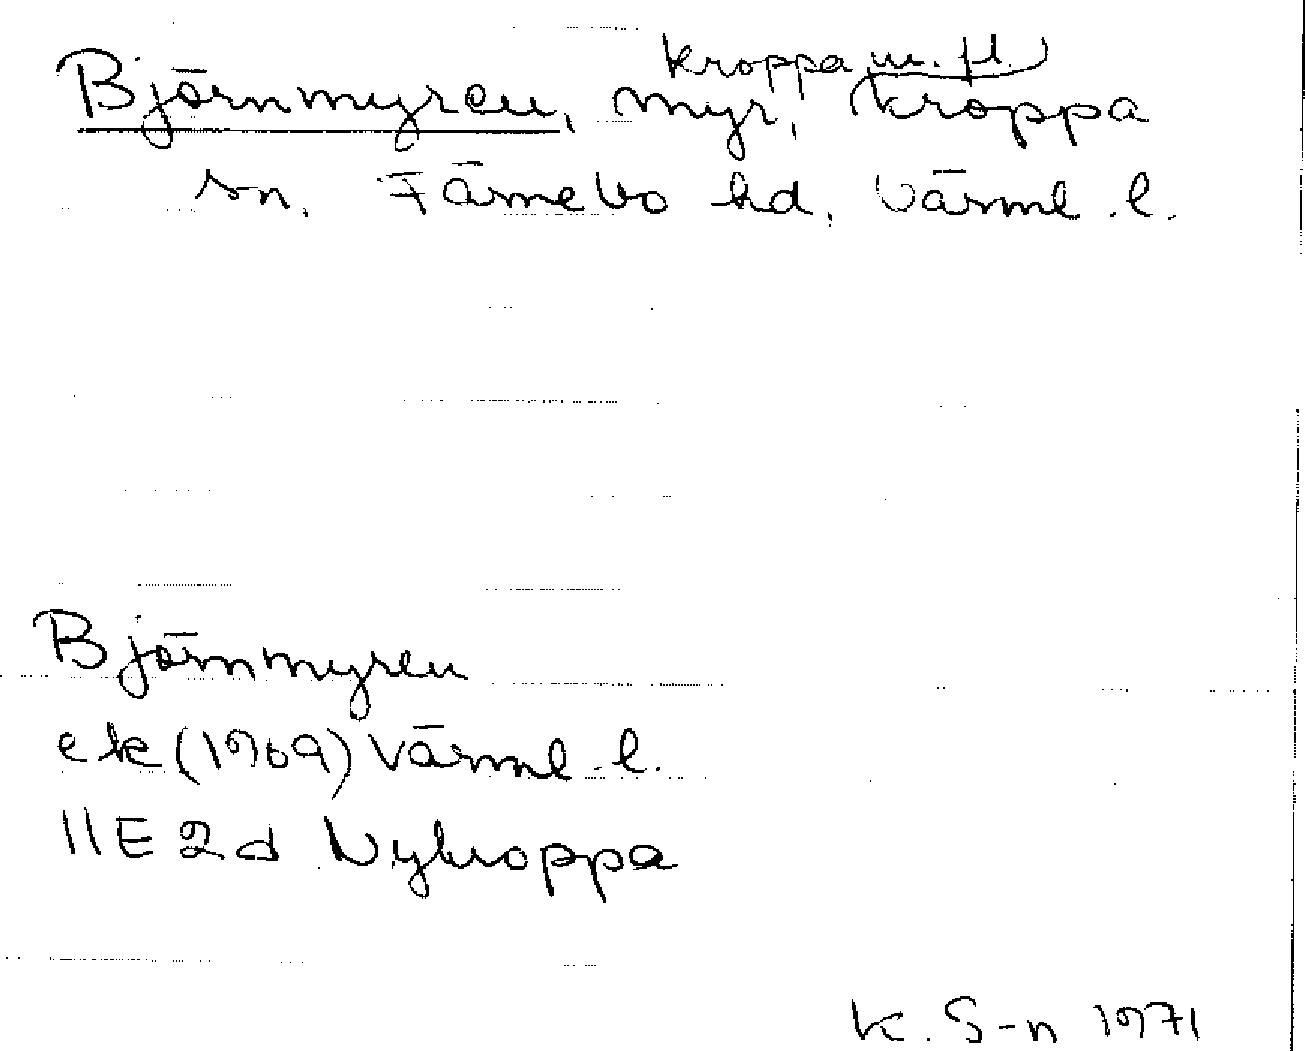 Kroppa m. fl.)
Björnmyren, myr, Kroppa
sn. Färnebo hd, Värml. l.
Björnmyren
ek (1969) Värml. l.
11E 2d Nykroppa
K. S-n 1971